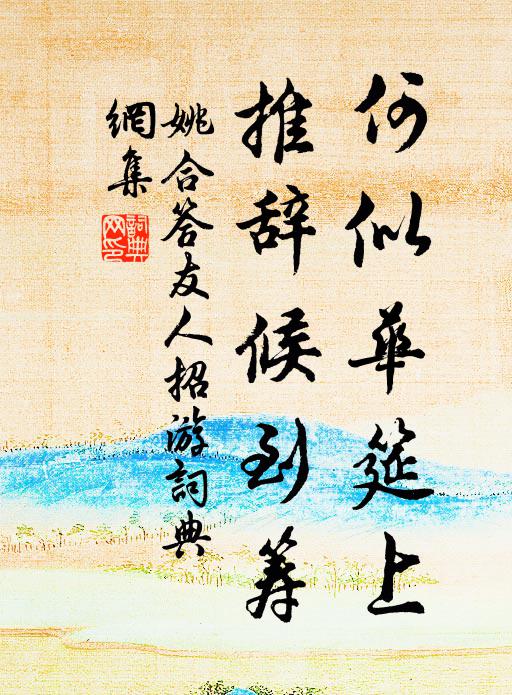 何似華筵上
推辞候到筹
姚合答友人招游詞典
網集
詞典網印